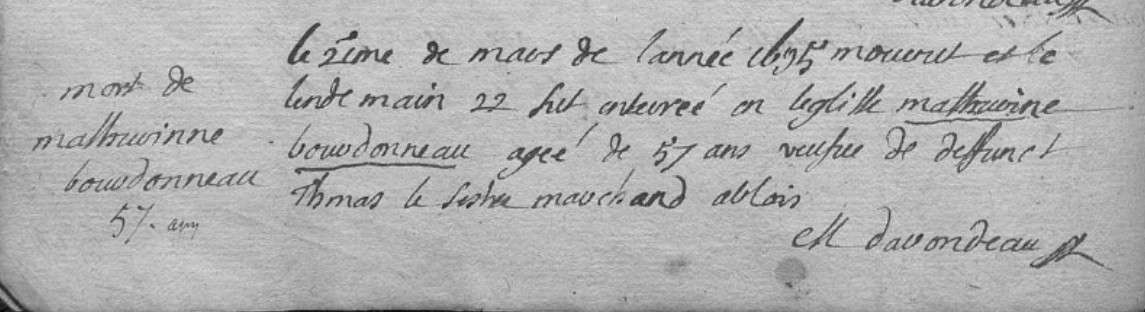 mort de
mathurinne
bourdonneau
57. ans
le 21eme de mars de lannée 1695 mourut et le
lendemain 22 fut enterreé en leglise mathurine
bourdonneau ageé de 57 ans veufve de deffunct
Thmas le marchand ablois
davondeau